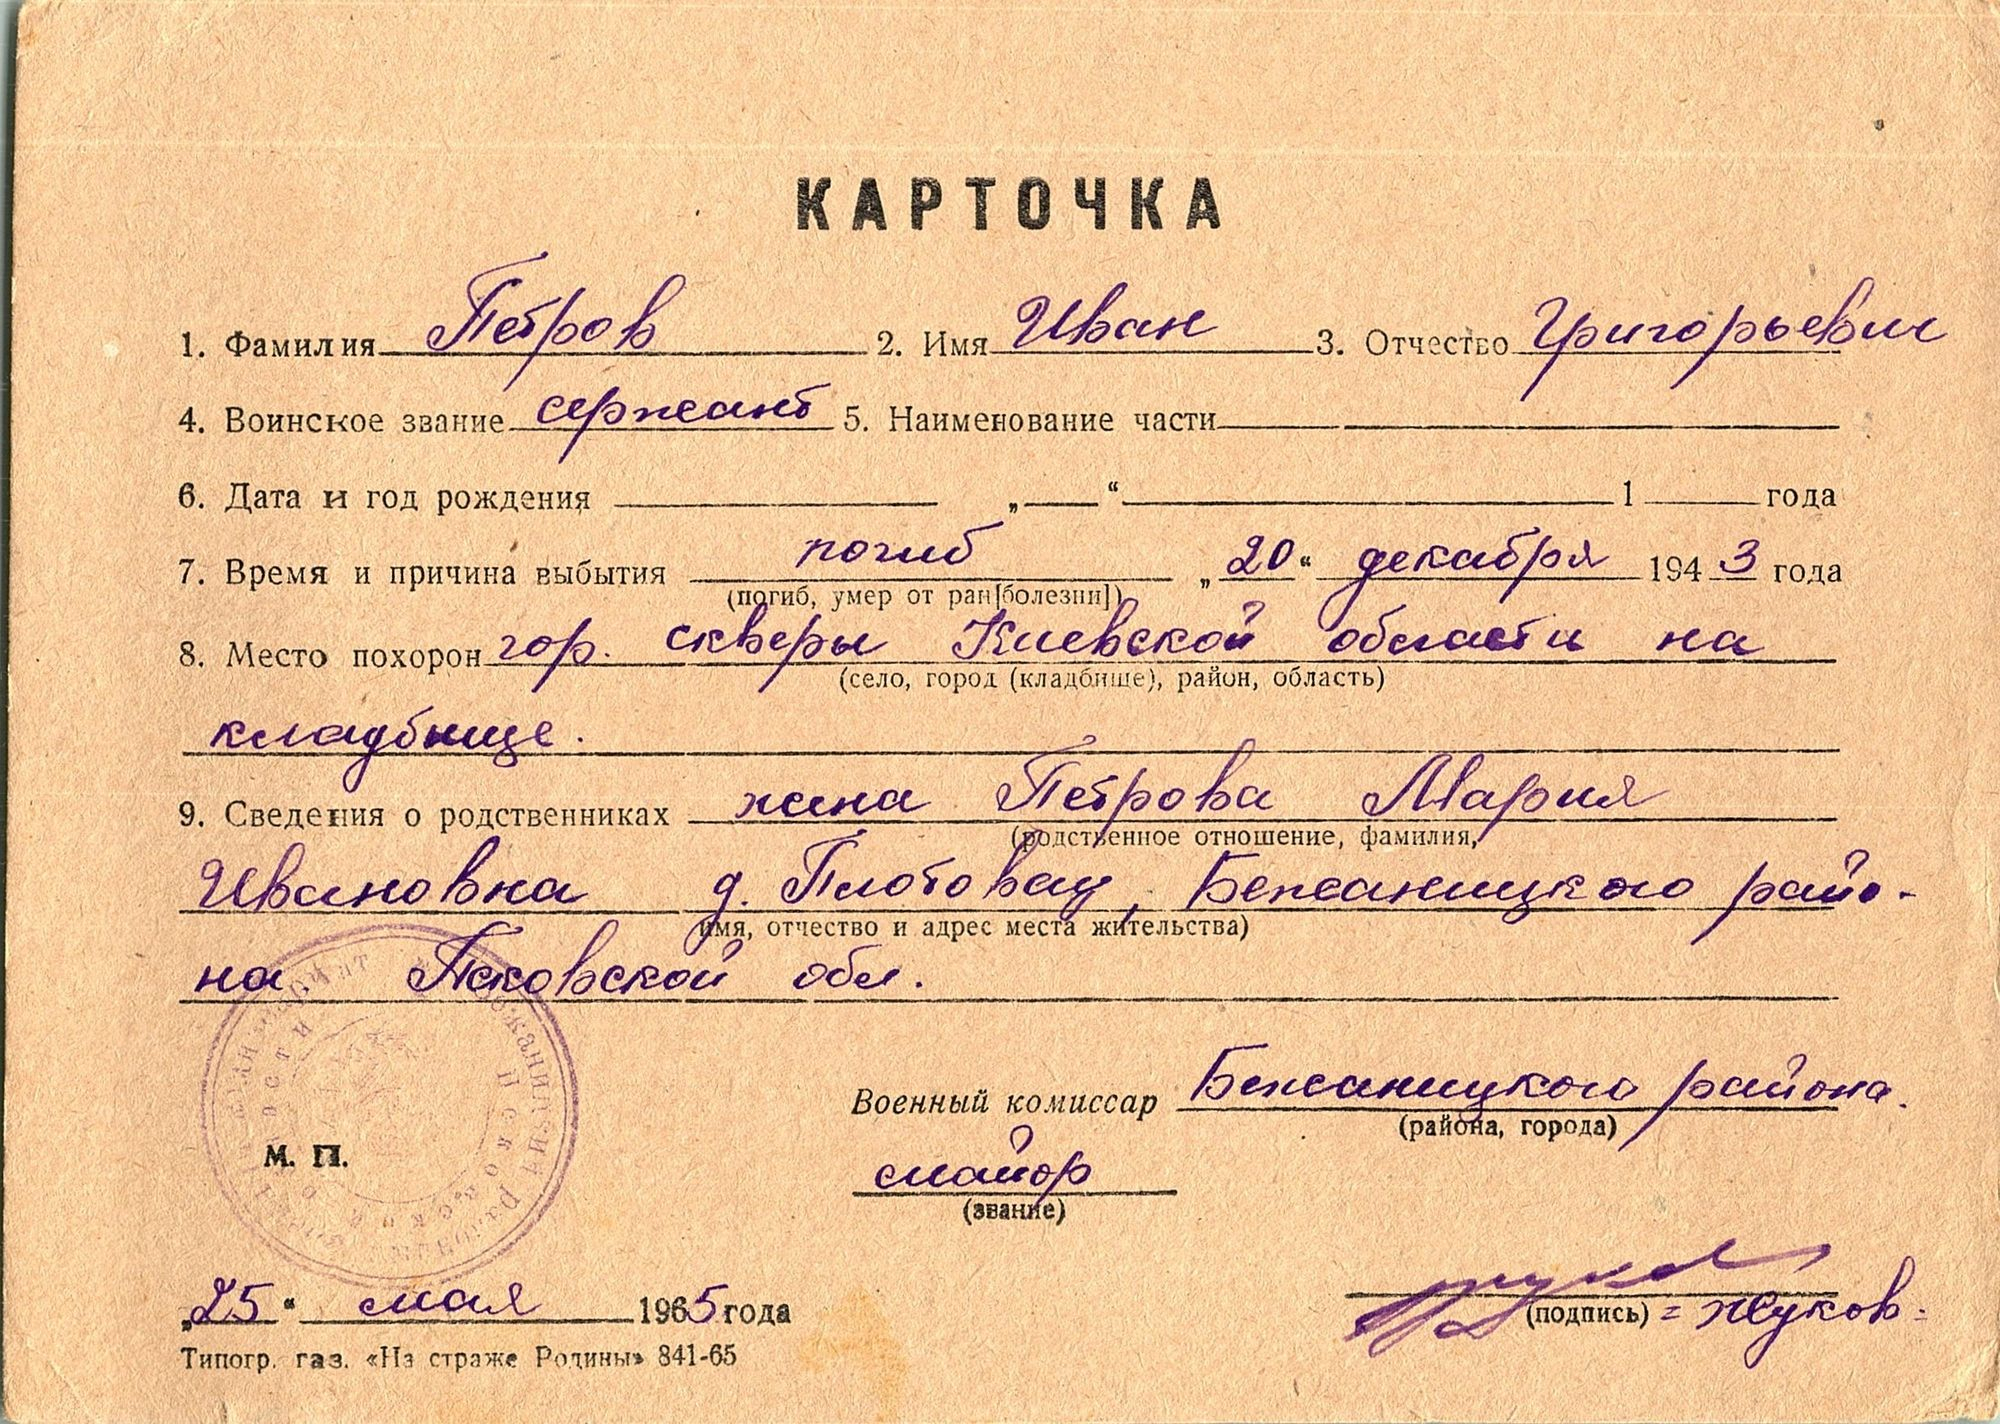 КАРТОЧКА
1. Фамилия Петров 2. Имя Иван 3. Отчество Григорьевич
4. Воинское звание сержант 5. Наименование части
6. Дата и год рождения „ “ 1 года
7. Время и причина выбытия погиб „20“ декабря 1943 года
(погиб, умер от ран[болезни])
8. Место похорон гор. скверы Киевской области на
(село, город (кладбище), район, область)
кладбище.
9. Сведения о родственниках жена Петрова Мария
(родственное отношение, фамилия,
Ивановна д. Плотовец, Бежаницкого райо-
имя, отчество и адрес места жительства)
на Псковской обл.
Военный комиссар Бежаницкого района.
(района, города)
М. П.
майор
(звание)
(подпись) = Жуков -
„25“ мая 1965 года
Типогр. газ. «На страже Родины» 841-65